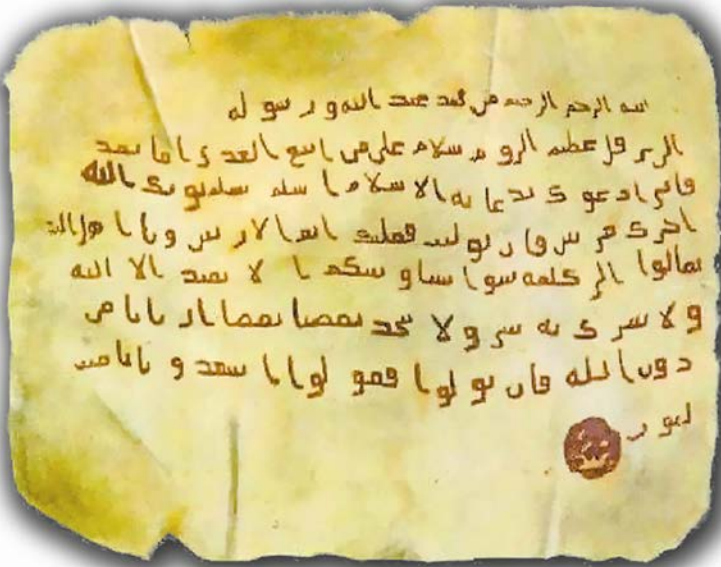 بسم الرحم الرحيم من محمد عبد الله و رسو له
الى هر قل عظيم الرو م سلام على من اتبع الهدى اما بعد
فانى اد عو ك بدعا يه الا سلام ا سلم تسلم يو تك الله
اجر ك مر تين فا ن تو ليت فعليك اثم الا ر يس و يا ا هل الكت
تعالوا الى كلمه سوا بيننا و بينكم ا لا نعبد الا الله
و لا نشر ك به شى و لا يتخذ بعضنا بعضا ار بابا من
دون الله فان تو لوا فقو لوا ا شهد و باننا